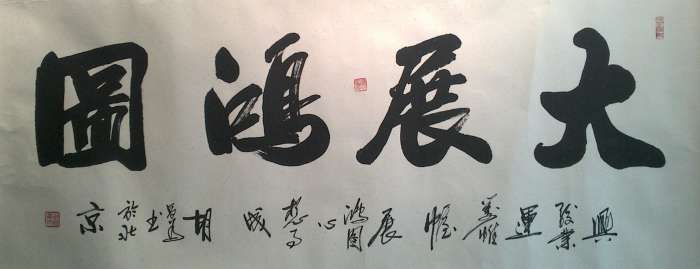 大展鴻圖
興駿業運籌帷幄展鴻圖心想事成胡書於北京